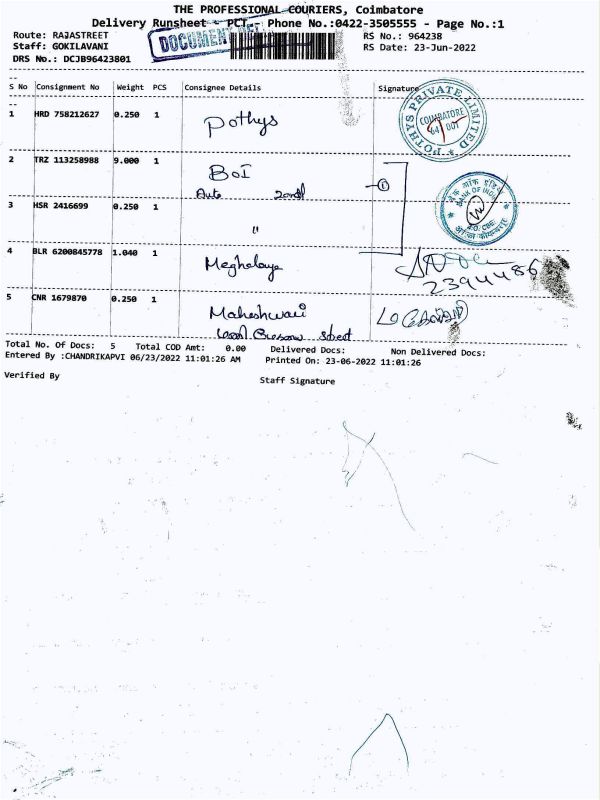 THE PROFESSIONAL COURIERS, Coimbatore
Delivery Runsheet - PCT - Phone No.:0422-3505555 - Page No.:1
Route: RAJASTREET
Staff: GOKILAVANI
DRS No.: DCJB96423801
DOCUMENT
RS No.: 964238
RS Date: 23-Jun-2022
S No Consignment No Weight PCS Consignee Details Signature
1 HRD 758212627 0.250 1 Pothys
POTHYS PRIVATE LIMITED
COIMBATORE
OCT
2 TRZ 113258988 9.000 1 BOI
BANK OF INDIA
3 HSR 2416699 0.250 1 "
4 BLR 6200845778 1.040 1 Meghalaya
2394486
5 CNR 1679870 0.250 1 Maheshwari
Total No. Of Docs: 5 Total COD Amt: 0.00 Delivered Docs: Non Delivered Docs:
Entered By :CHANDRIKAPVI 06/23/2022 11:01:26 AM Printed On: 23-06-2022 11:01:26
Verified By
Staff Signature